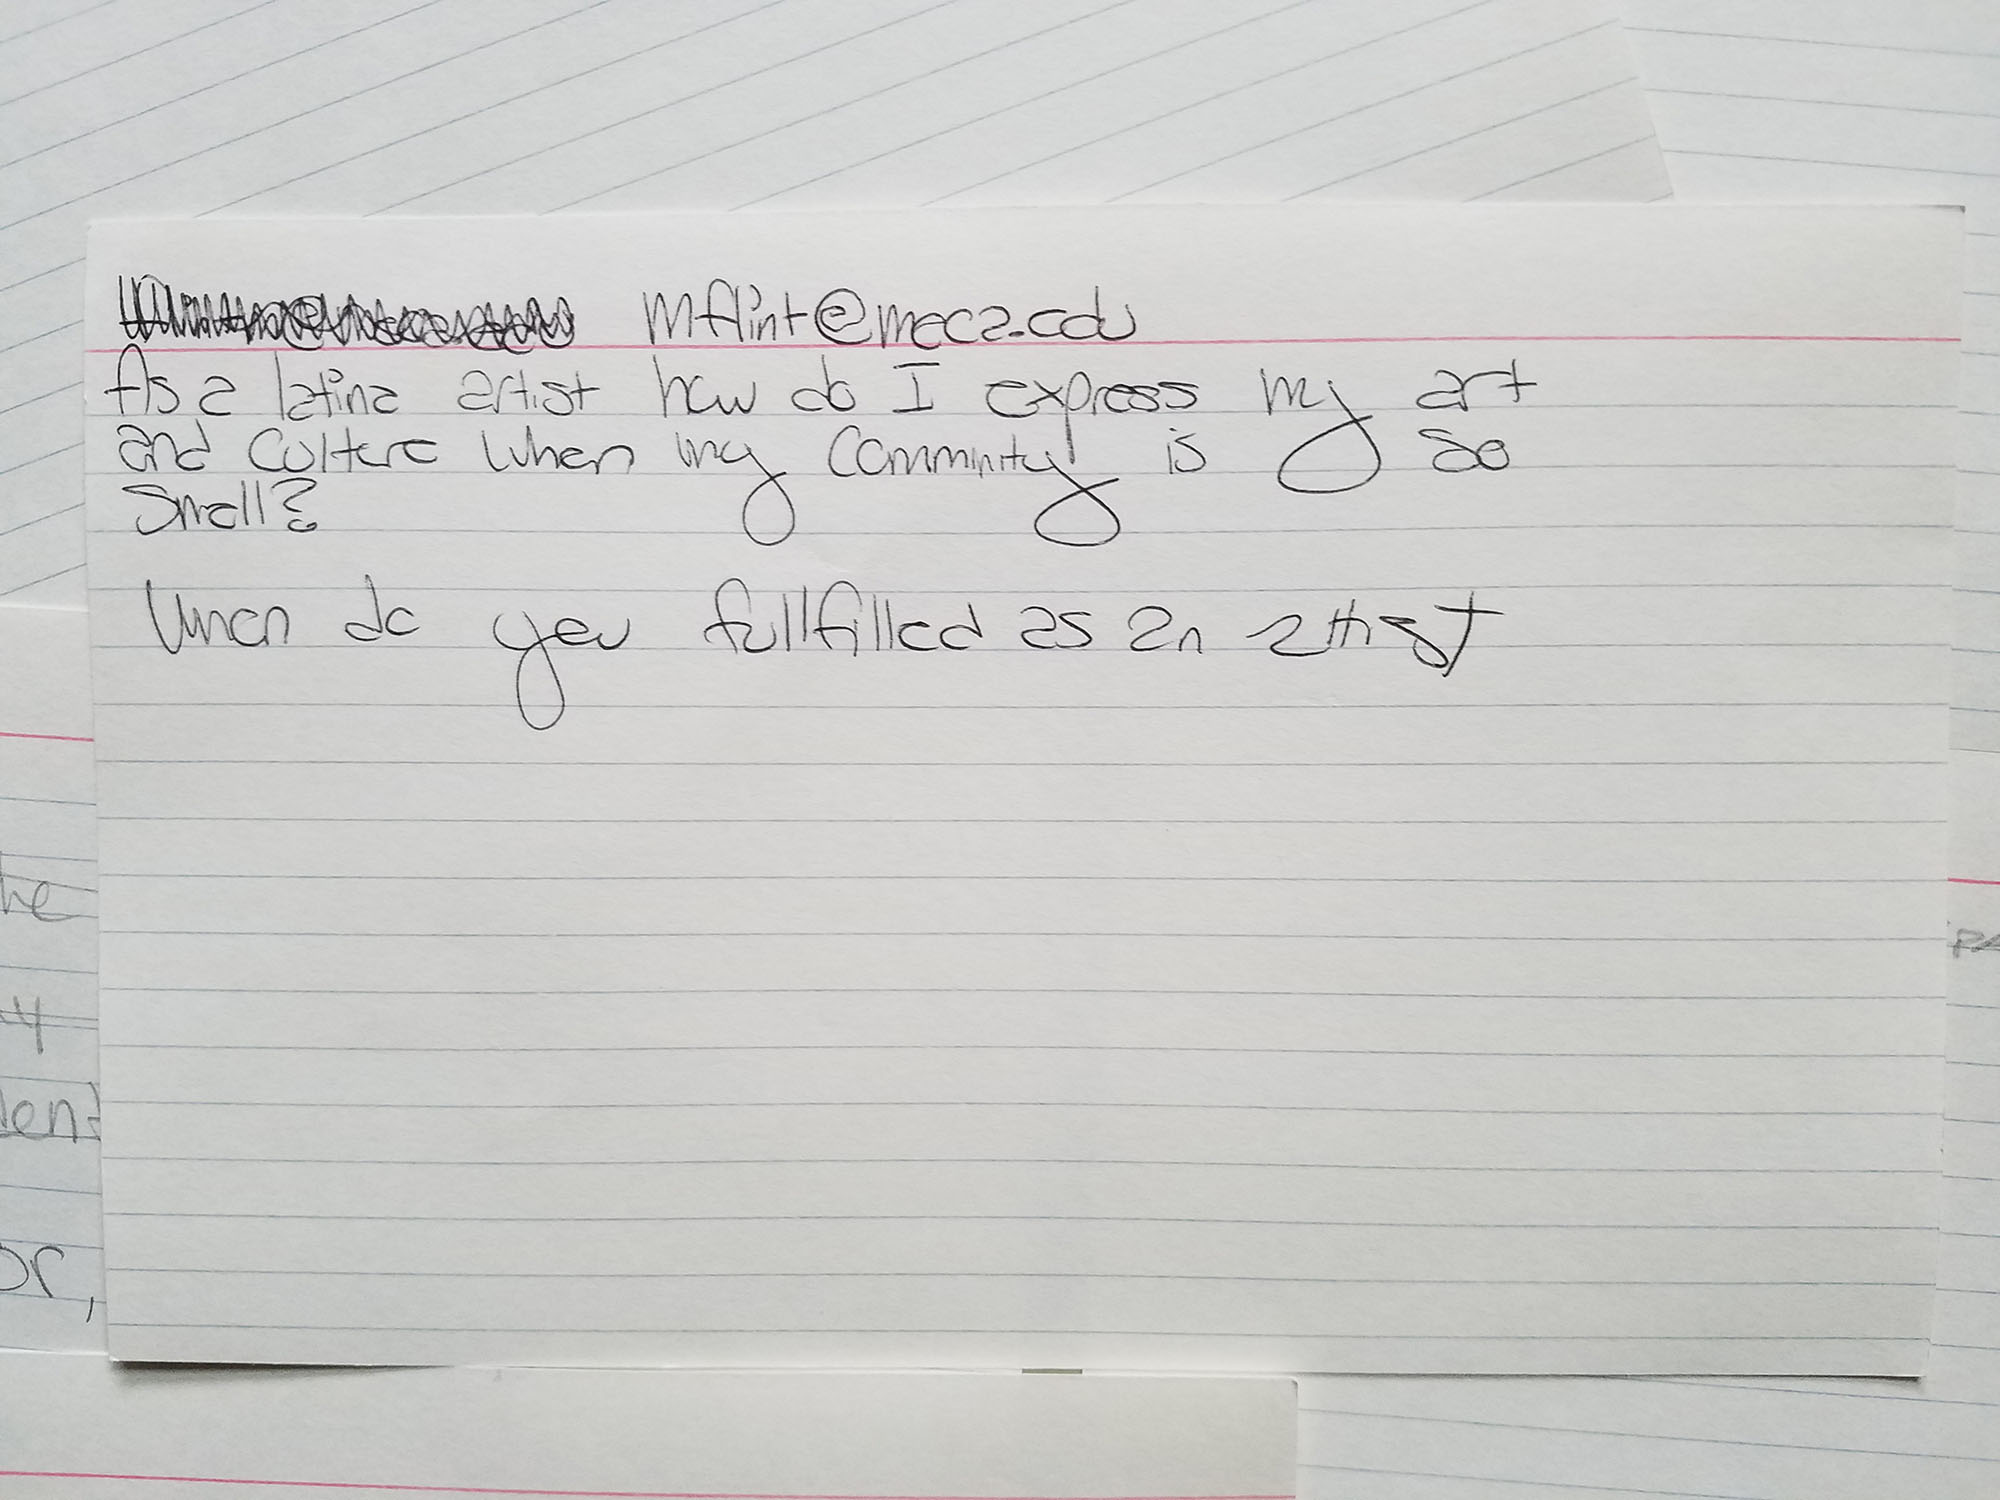 mflint@meca.edu
As a latina artist how do I express my art
and culture when my Comminity is so
small?
When do you fullfilled as an artist
he
y
lent
or,